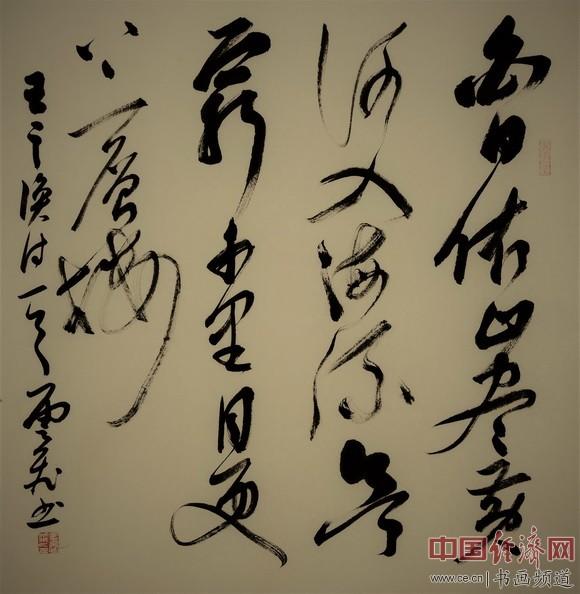 白日依山尽黄
河入海流欲
穷千里目更
上一层楼
王之涣诗一首云书
中国经济网
www.ce.cn | 书画频道